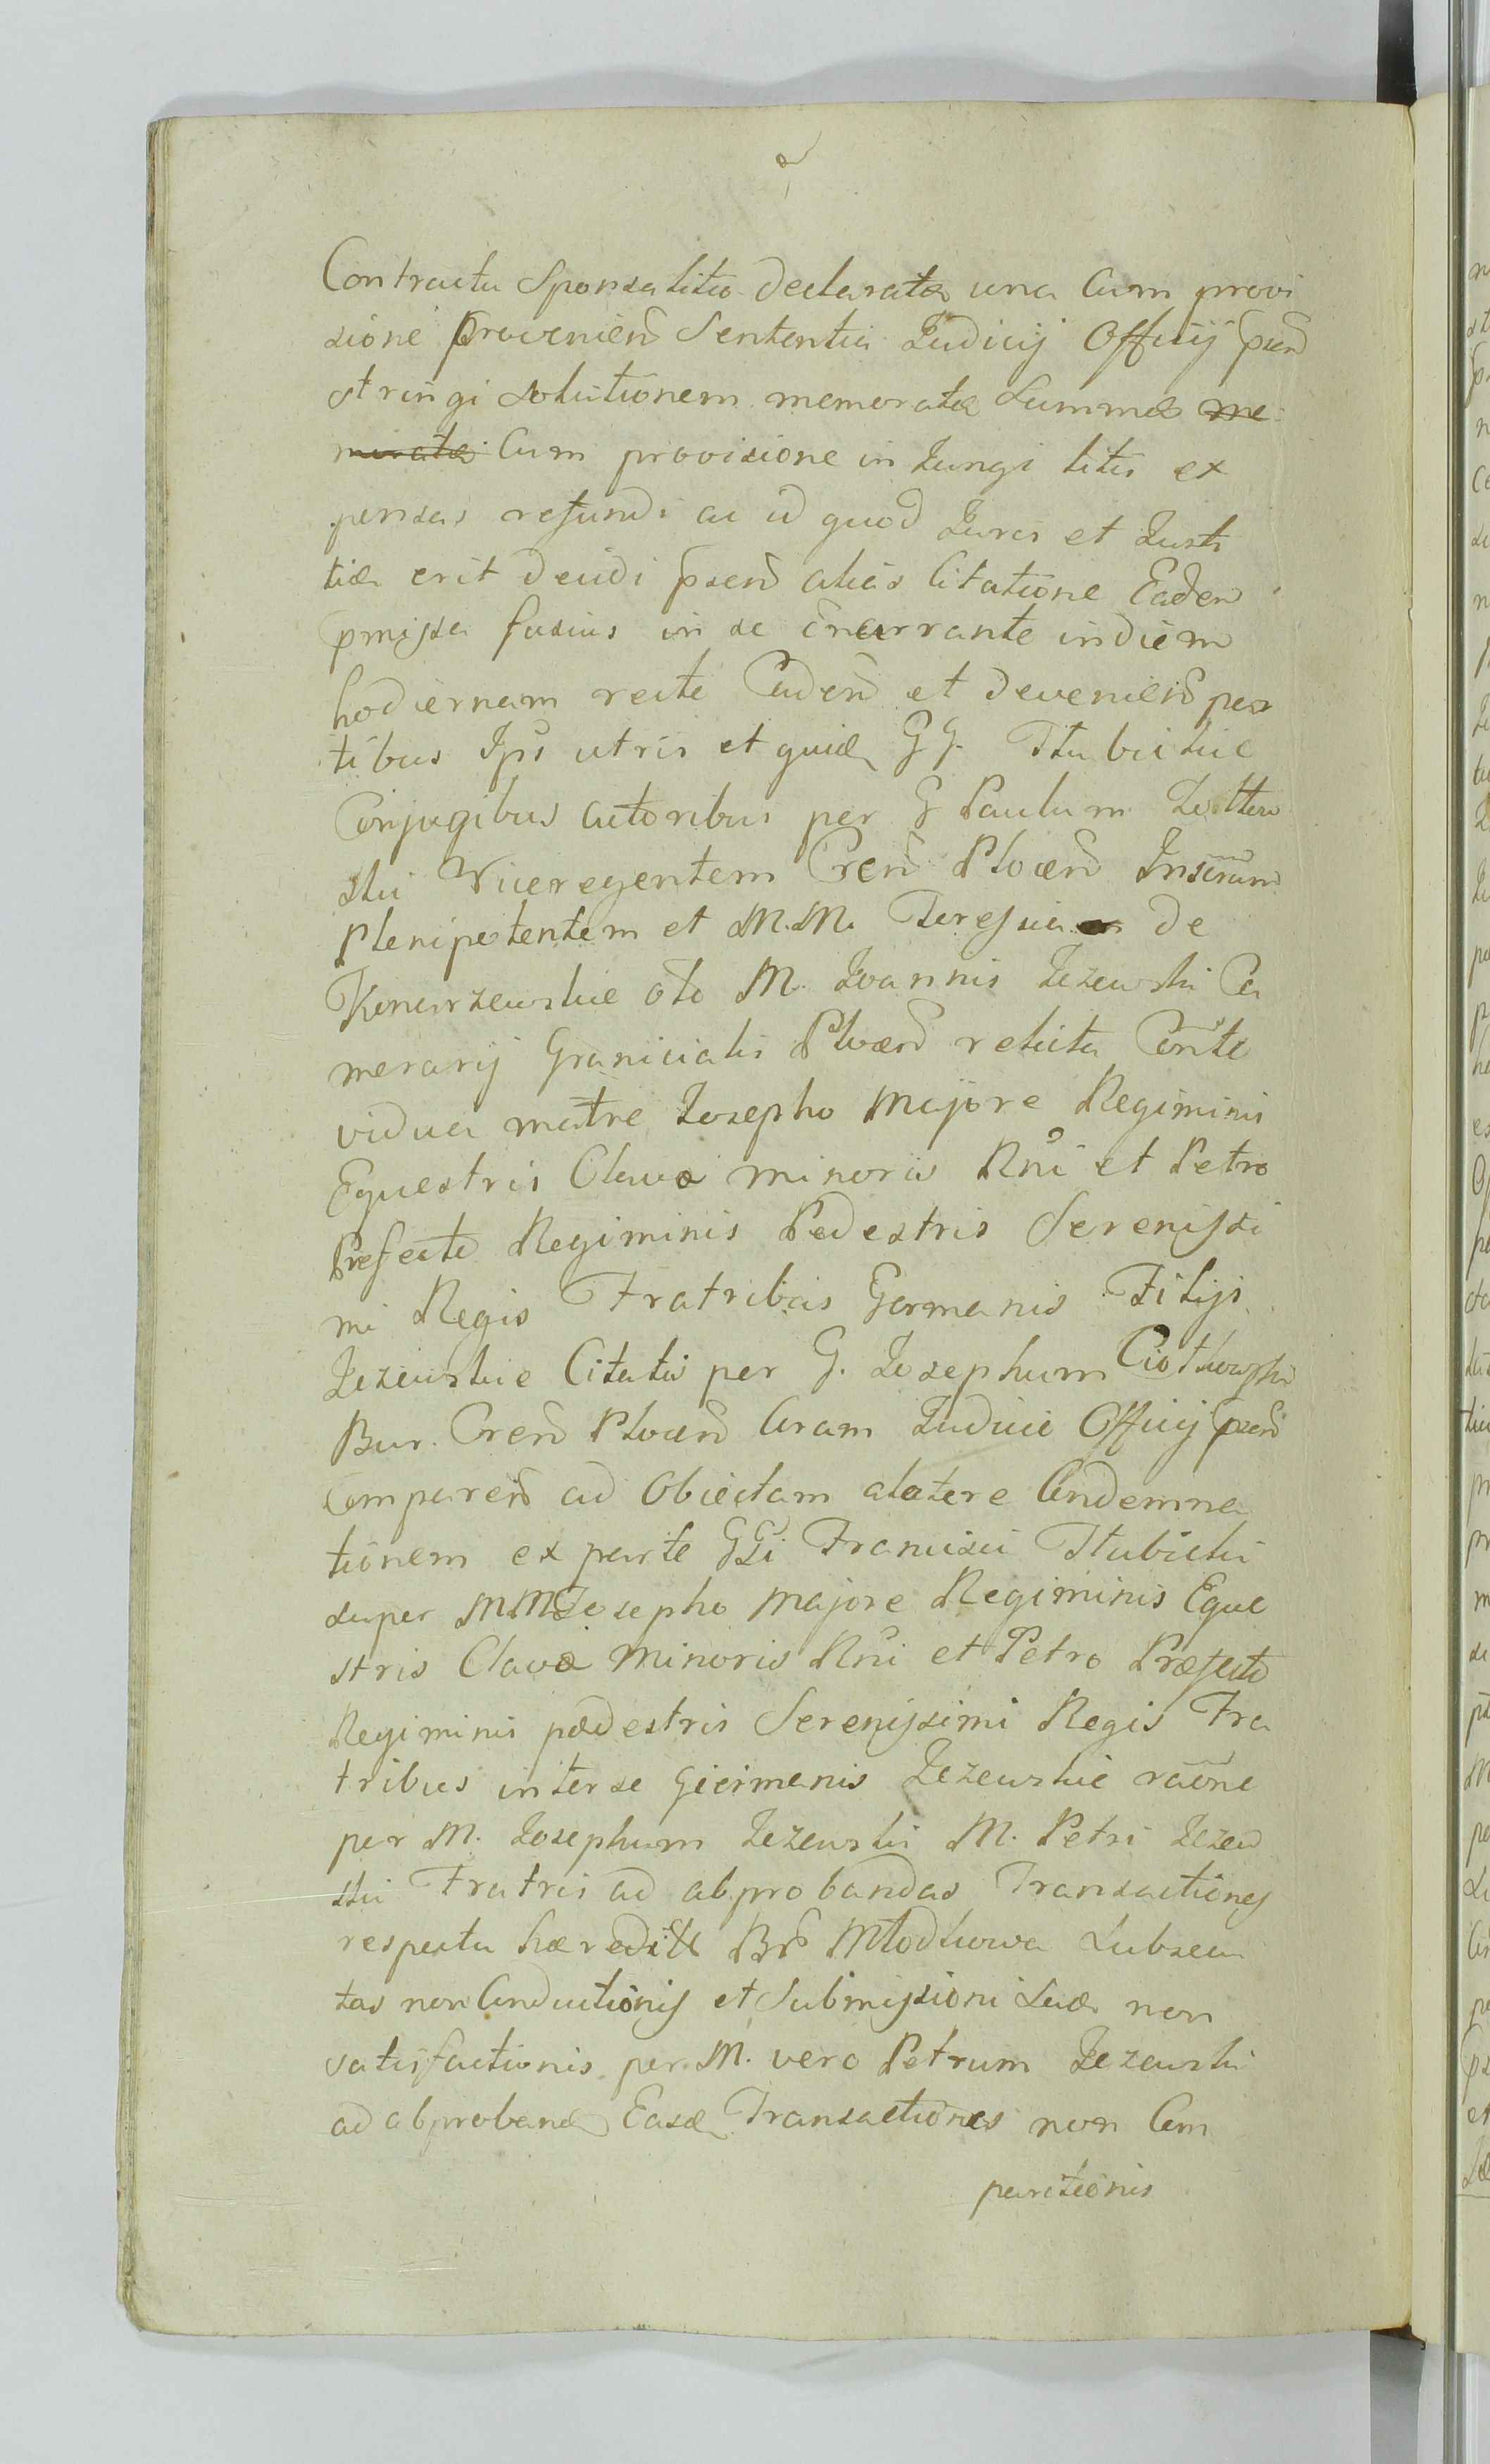 Contractu Sponsalitio declarata una Cum provi
sione provenien Sententia Judicij Officij psen
stringi solutionem memoratæ Summæ me
moratæ Cum provisione in Jungi litis ex
pensas refundi ac id quod Juris et Justi
tiæ erit decidi psen alias Citatione Eadem
pmissa fusius in se enarrante in diem
hodiernam recte Caden et devenien par
tibus Ips utris et quid GG.
Conjugibus actoribus per G Paulum
ski Viceregentem Cren Plocen Inscrum
Plenipotentem et M.M. Teressia de
Konarzewskie olo M. Joannis Jezewski Ca
merarij Granicialis Plocen relicta Conte
vidua matre Josepho Majore Regiminis
Equestris Clavæ minoris Rni et Petro
Prefecto Regiminis Pedestris Serenissi
mi Regis Fratribus Germanis Filijs
Jezewskie Citatis per G. Josephum
Bur. Cren Plocen Coram Judicio Officij psen
Comparen ad Obiectam alatere Condemna
tionem ex parte GGi Francisci
super MM Josepho Majore Regiminis Eque
stris Clavæ Minoris Rni et Petro Præfecto
Regiminis pædestris Serenissimi Regis Fra
tribus inter se Giermanis Jezewskie raone
per M. Josephum Jezewski M. Petri Jezew
ski Fratris ad abprobandas Transactiones
respectu hæredit Br Młodkowa Lubsecu
tas non Conductionis et Submissioni Suæ non
satisfactionis per M. vero Petrum Jezewski
ad abproband Easd Transactiones non Com
paritionis